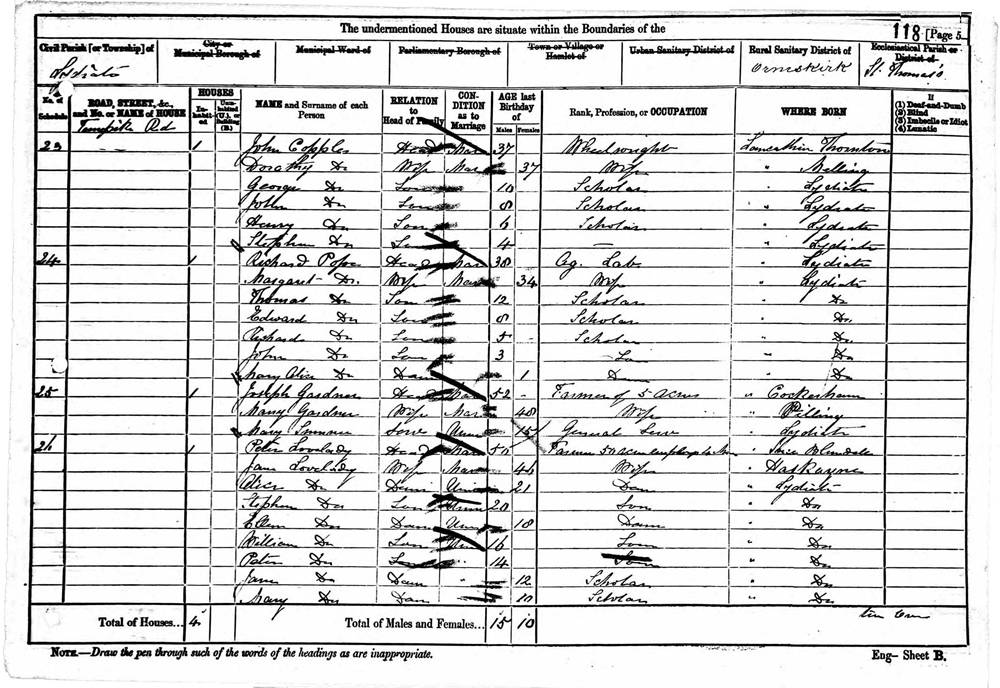 The undermentioned Houses are situate within the Boundaries of the
118 [Page 5
Civil Parish [or Township] of
City or Municipal Borough of
Municipal Ward of
Parliamentary Borough of
Town or Village or Hamlet of
Urban Sanitary District of
Rural Sanitary District of
Ecclesiastical Parish or District of
Lydiate
Ormskirk
St. Thomas's
No. of Schedule
ROAD, STREET, &c., and No. or NAME of HOUSE
HOUSES
Inhabited
Uninhabited (U.), or Building (B.)
NAME and Surname of each Person
RELATION to Head of Family
CONDITION as to Marriage
AGE last Birthday of
Males
Females
Rank, Profession, or OCCUPATION
WHERE BORN
If
(1) Deaf-and-Dumb
(2) Blind
(3) Imbecile or Idiot
(4) Lunatic
Rd
23 1 John Copple Head Mar 37 Wheelwright Lancashire Thornton
Dorothy Do Wife Mar 37 Wife " Melling
George Do Son 10 Scholar " Lydiate
John Do Son 8 Scholar " Lydiate
Henry Do Son 6 Scholar " Lydiate
Stephen Do Son 4 — " Lydiate
24 1 Richard Pope Head Mar 38 Ag. Lab " Lydiate
Margaret Do Wife Mar 34 Wife " Lydiate
Thomas Do Son 12 Scholar " Do
Edward Do Son 8 Scholar " Do
Richard Do Son 5 Scholar " Do
John Do Son 3 Son " Do
Mary Alice Do Daur 1 " Do
25 1 Joseph Gardner Head Mar 52 Farmer of 5 Acres " Cockerham
Mary Gardner Wife Mar 48 Wife " Pilling
Mary Serv Unm 15 General Serv " Lydiate
26 1 Peter Lovelady Head Mar 50 Farmer 50 acres " Ince Blundell
Jane Lovelady Wife Mar 46 Wife " Haskayne
Alice Do Daur Unm 21 Daur " Lydiate
Stephen Do Son Unm 20 Son " Do
Ellen Do Daur Unm 18 Daur " Do
William Do Son Unm 16 Son " Do
Peter Do Son " 14 Son " Do
Jane Do Daur " 12 Scholar " Do
Mary Do Daur 10 Scholar " Do
Total of Houses... 4
Total of Males and Females... 15 10
NOTE.—Draw the pen through such of the words of the headings as are inappropriate.
Eng— Sheet B.